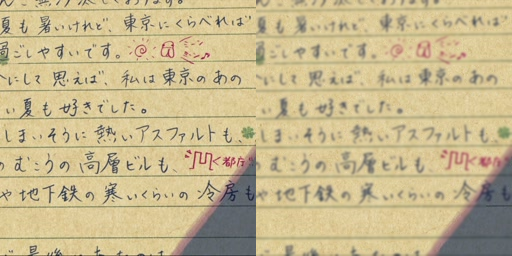 夏も暑いけれど、東京にくらべれば
過ごしやすいです。
にして思えば、私は東京のあの
い夏も好きでした。
しまいそうに熱いアスファルトも、
のむこうの高層ビルも、
や地下鉄の寒いくらいの冷房も
夏も暑いけれど、東京にくらべれば
ごしやすいです。
にして思えば、私は東京のあの
い夏も好きでした。
しまいそうに熱いアスファルトも、
むこうの高層ビルも、
や地下鉄の寒いくらいの冷房も